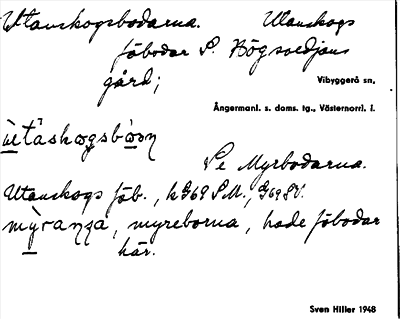 Utanskogsbodarna. Utanskogs
fäbodar S. Bögsvedjans
gård;
Vibyggerå sn,
Ångermanl. s. doms. tg., Västernorrl. l.
Se Myrbodarna.
Utanskogs fäb., kG69 SM., G69 SV.
myreborna, hade fäbodar
här.
Sven Hiller 1948